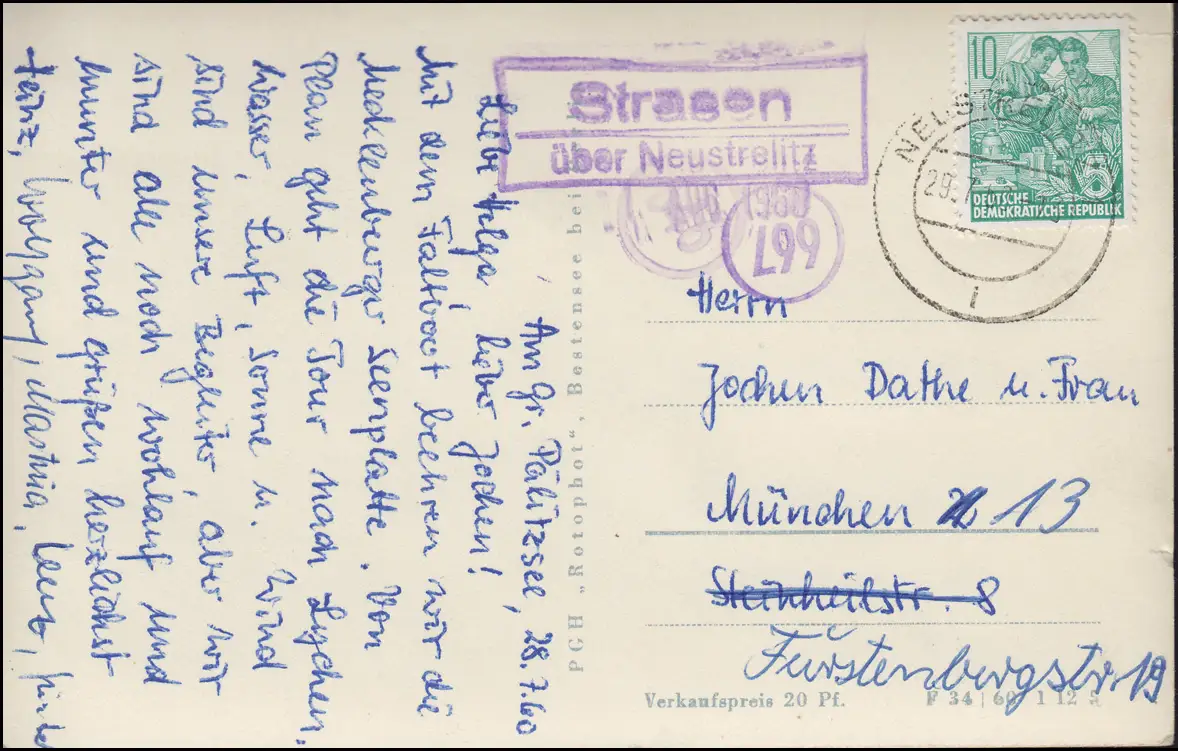 Am Gr. Pälitzsee, 28.7.60
Liebe Helga, lieber Jochen!
Mit dem Faltboot beehren wir die
Mecklenburger Seenplatte. Von
Plan geht die Tour nach Lychen.
Wasser, Luft, Sonne u. Wind
sind unsere Begleiter, aber wir
sind aber noch wohlauf und
munter und grüßen herzlichst
Heinz, Wolfgang,
PGH „Rotophot“, Bestensee bei
Strasen
über Neustrelitz
1960
L99
10
DEUTSCHE
DEMOKRATISCHE REPUBLIK
5
29.7.
Herrn
Jochen Dathe u. Frau
München 13
Steinheilstr. 8
Fürstenbergstr. 19
Verkaufspreis 20 Pf.
F 34 | 60 1 12 5